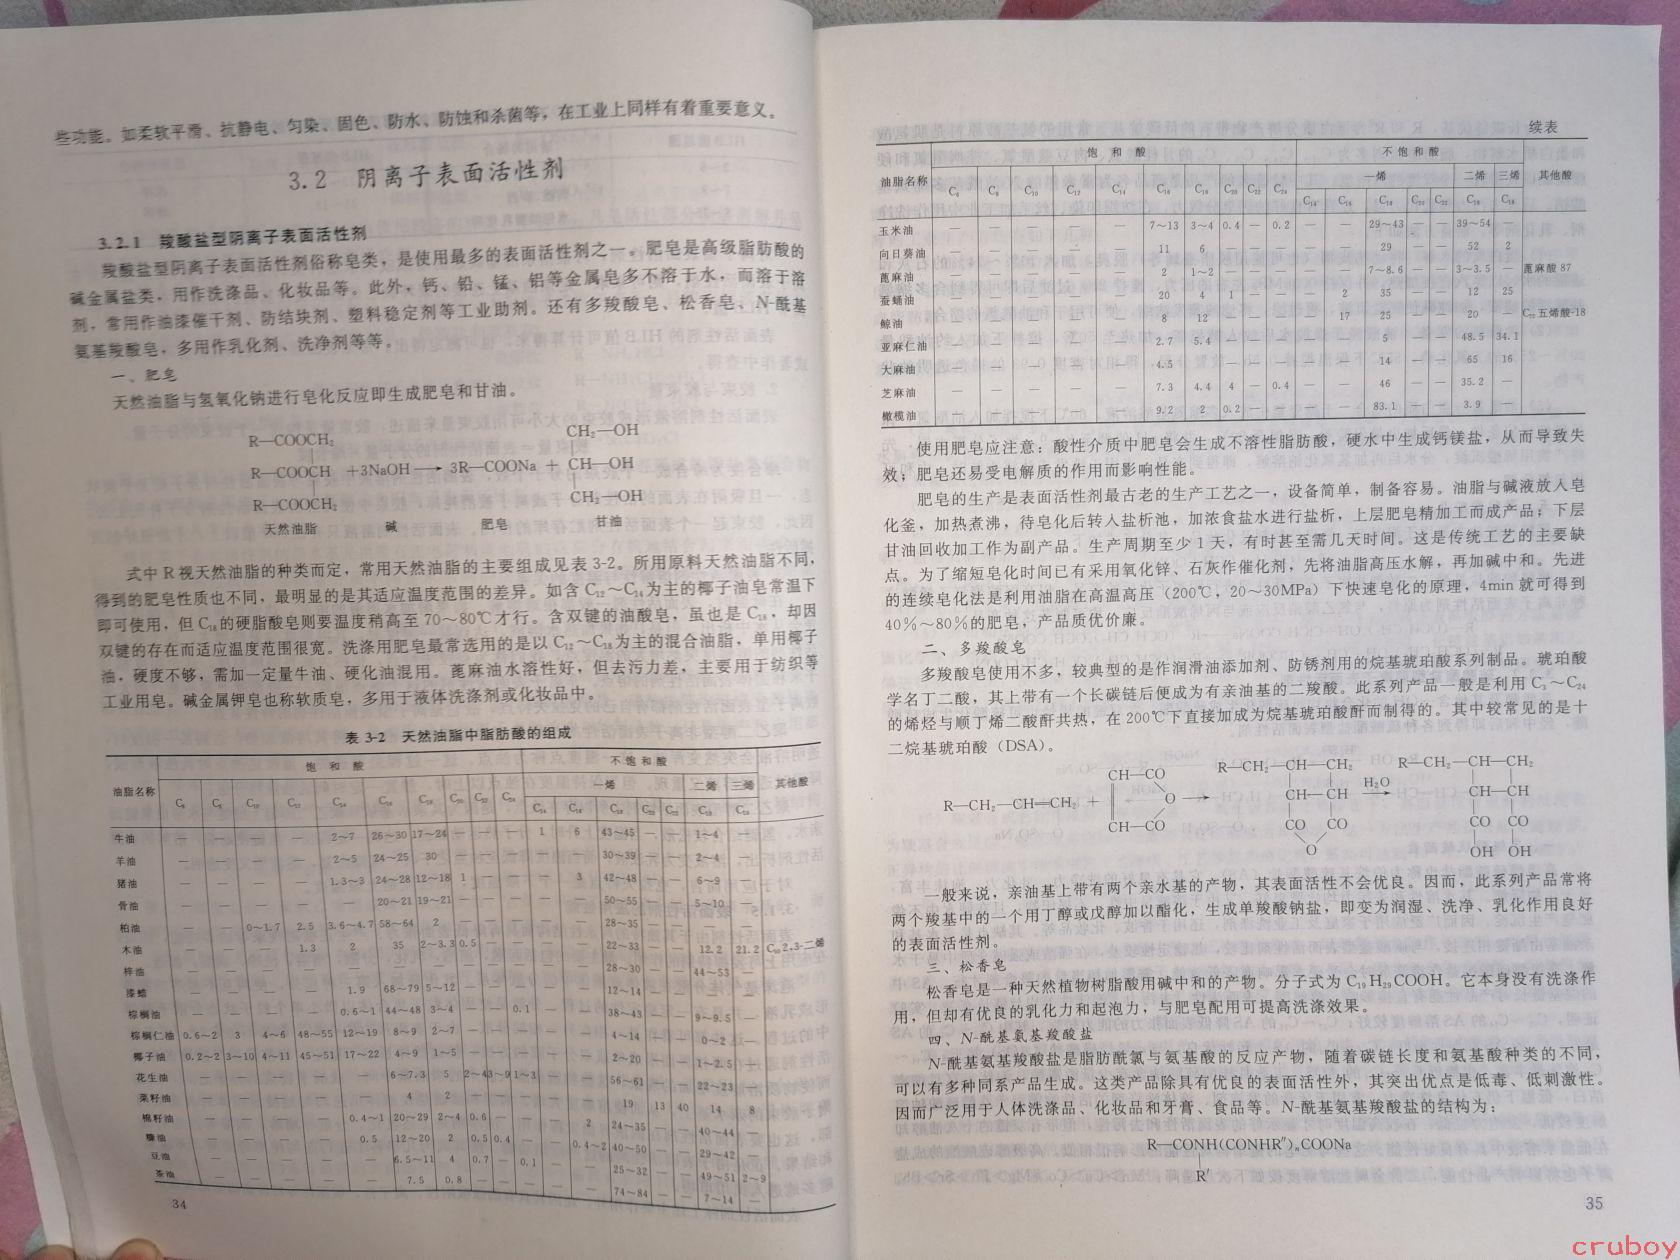 些功能。如柔软平滑、抗静电、匀染、固色、防水、防蚀和杀菌等，在工业上同样有着重要意义。
3.2 阴离子表面活性剂
3.2.1 羧酸盐型阴离子表面活性剂
羧酸盐型阴离子表面活性剂俗称皂类，是使用最多的表面活性剂之一。肥皂是高级脂肪酸的
碱金属盐类，用作洗涤品、化妆品等。此外，钙、铅、锰、铝等金属皂多不溶于水，而溶于溶
剂，常用作油漆催干剂、防结块剂、塑料稳定剂等工业助剂。还有多羧酸皂、松香皂、N-酰基
氨基羧酸皂，多用作乳化剂、洗净剂等等。
一、肥皂
天然油脂与氢氧化钠进行皂化反应即生成肥皂和甘油。
R—COOCH₂ CH₂—OH
R—COOCH +3NaOH → 3R—COONa + CH—OH
R—COOCH₂ CH₂—OH
天然油脂 碱 肥皂 甘油
式中 R 视天然油脂的种类而定，常用天然油脂的主要组成见表 3-2。所用原料天然油脂不同，
得到的肥皂性质也不同，最明显的是其适应温度范围的差异。如含 C₁₂～C₁₄为主的椰子油皂常温下
即可使用，但 C₁₈的硬脂酸皂则要温度稍高至 70～80℃才行。含双键的油酸皂，虽也是 C₁₈，却因
双键的存在而适应温度范围很宽。洗涤用肥皂最常选用的是以 C₁₂～C₁₈为主的混合油脂，单用椰子
油，硬度不够，需加一定量牛油、硬化油混用。蓖麻油水溶性好，但去污力差，主要用于纺织等
工业用皂。碱金属钾皂也称软质皂，多用于液体洗涤剂或化妆品中。
表 3-2 天然油脂中脂肪酸的组成
油脂名称 饱和酸 不饱和酸 其他酸
一烯 二烯 三烯
C₆ C₈ C₁₀ C₁₂ C₁₄ C₁₆ C₁₈ C₂₀ C₂₂ C₂₄ C₁₄ C₁₆ C₁₈ C₂₀ C₂₂ C₁₈ C₁₈
牛油 — — — — 2～7 26～30 17～24 — — — 1 6 43～45 — — 1～4 —
羊油 — — — — 2～5 24～25 30 — — — — — 30～39 — — 2～4 —
猪油 — — — — 1.3～3 24～28 12～18 1 — — — 3 42～48 — — 6～9 —
骨油 — — — — — 20～21 19～21 — — — — — 50～55 — — 5～10 —
柏油 — — 0～1.7 2.5 3.6～4.7 58～64 2 — — — — — 28～35 — — — —
木油 — — — 1.3 2 35 2～3.3 0.5 — — — — 22～33 — — 12.2 21.2 C₁₀2,3-二烯
梓油 — — — — — — — — — — — — 28～30 — — 44～53 —
漆蜡 — — — — 1.9 68～79 5～12 — — — — — 12～14 — — — —
棕榈油 — — — — 0.6～1 44～48 3～4 — — 0.1 — — 38～43 — — 9～9.5 —
棕榈仁油 0.6～2 3 4～6 48～55 12～19 8～9 2～7 — — — — — 4～14 — — 0～2 —
椰子油 0.2～2 3～10 4～11 45～51 17～22 4～9 1～5 — — — — — 2～20 — — 1～2.5 —
花生油 — — — — — 6～7.3 5 2～4 3～9 1～3 — — 56～61 — — 22～23 —
菜籽油 — — — — — 4 2 — — — — — 19 13 40 14 8
棉籽油 — — — — 0.4～1 20～29 2～4 0.6 — — — 2 24～35 — — 40～44 —
糠油 — — — — 0.5 12～20 2 0.5 0.4 — — 0.4～2 40～50 — — 29～42 —
豆油 — — — — — 6.5～11 4 0.7 — 0.1 — — 25～32 — — 49～51 2～9
茶油 — — — — — 7.5 0.8 — — — — — 74～84 — — 7～14 —
34
续表
油脂名称 饱和酸 不饱和酸 其他酸
一烯 二烯 三烯
C₆ C₈ C₁₀ C₁₂ C₁₄ C₁₆ C₁₈ C₂₀ C₂₂ C₂₄ C₁₄ C₁₆ C₁₈ C₂₀ C₂₂ C₁₈ C₁₈
玉米油 — — — — — 7～13 3～4 0.4 — 0.2 — — 29～43 — — 39～54 —
向日葵油 — — — — — 11 6 — — — — — 29 — — 52 2
蓖麻油 — — — — — 2 1～2 — — — — — 7～8.6 — — 3～3.5 — 蓖麻酸 87
蚕蛹油 — — — — — 20 4 1 — — — 2 35 — — 12 25
鲸油 — — — — — 8 12 — — — — 17 25 — — 20 — C₂₂五烯酸-18
亚麻仁油 — — — — — 2.7 5.4 — — — — — 5 — — 48.5 34.1
大麻油 — — — — — 4.5 — — — — — — 14 — — 65 16
芝麻油 — — — — — 7.3 4.4 4 — 0.4 — — 46 — — 35.2 —
橄榄油 — — — — — 9.2 2 0.2 — — — — 83.1 — — 3.9 —
使用肥皂应注意：酸性介质中肥皂会生成不溶性脂肪酸，硬水中生成钙镁盐，从而导致失
效；肥皂还易受电解质的作用而影响性能。
肥皂的生产是表面活性剂最古老的生产工艺之一，设备简单，制备容易。油脂与碱液放入皂
化釜，加热煮沸，待皂化后转入盐析池，加浓食盐水进行盐析，上层肥皂精加工而成产品，下层
甘油回收加工作为副产品。生产周期至少 1 天，有时甚至需几天时间。这是传统工艺的主要缺
点。为了缩短皂化时间已有采用氧化锌、石灰作催化剂，先将油脂高压水解，再加碱中和。先进
的连续皂化法是利用油脂在高温高压（200℃，20～30MPa）下快速皂化的原理，4min 就可得到
40％～80％的肥皂，产品质优价廉。
二、多羧酸皂
多羧酸皂使用不多，较典型的是作润滑油添加剂、防锈剂用的烷基琥珀酸系列制品。琥珀酸
学名丁二酸，其上带有一个长碳链后便成为有亲油基的二羧酸。此系列产品一般是利用 C₃～C₂₄
的烯烃与顺丁烯二酸酐共热，在 200℃下直接加成为烷基琥珀酸酐而制得的。其中较常见的是十
二烷基琥珀酸（DSA）。
CH—CO R—CH₂—CH—CH₂ R—CH₂—CH—CH₂
R—CH₂—CH═CH₂ + O → CH—CH H₂O → CH—CH
CH—CO CO CO CO CO
O OH OH
一般来说，亲油基上带有两个亲水基的产物，其表面活性不会优良。因而，此系列产品常将
两个羧基中的一个用丁醇或戊醇加以酯化，生成单羧酸钠盐，即变为润湿、洗净、乳化作用良好
的表面活性剂。
三、松香皂
松香皂是一种天然植物树脂酸用碱中和的产物。分子式为 C₁₉H₂₉COOH。它本身没有洗涤作
用，但却有优良的乳化力和起泡力，与肥皂配用可提高洗涤效果。
四、N-酰基氨基羧酸盐
N-酰基氨基羧酸盐是脂肪酰氯与氨基酸的反应产物，随着碳链长度和氨基酸种类的不同，
可以有多种同系产品生成。这类产品除具有优良的表面活性外，其突出优点是低毒、低刺激性。
因而广泛用于人体洗涤品、化妆品和牙膏、食品等。N-酰基氨基羧酸盐的结构为：
R—CONH(CONHR″)ₙCOONa
R′
35
cruboy